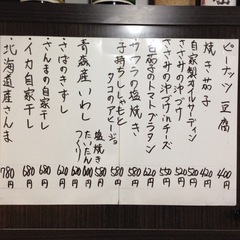 ピーナッツ豆腐 400円
焼き茄子 420円
自家製オイルサーディン 520円
ささみの沖づけ 550円
ささみの沖づけinチーズ 620円
白茄子のトマトグラタン 620円
サワラの塩焼き 580円
子持ちししゃもと
タコのアヒージョ 580円
青森産いわし 塩焼き 580円
たいたん 580円
つくり 600円
さばのきずし 620円
さんまの自家干し 680円
イカ自家干し 680円
北海道産さんま 780円